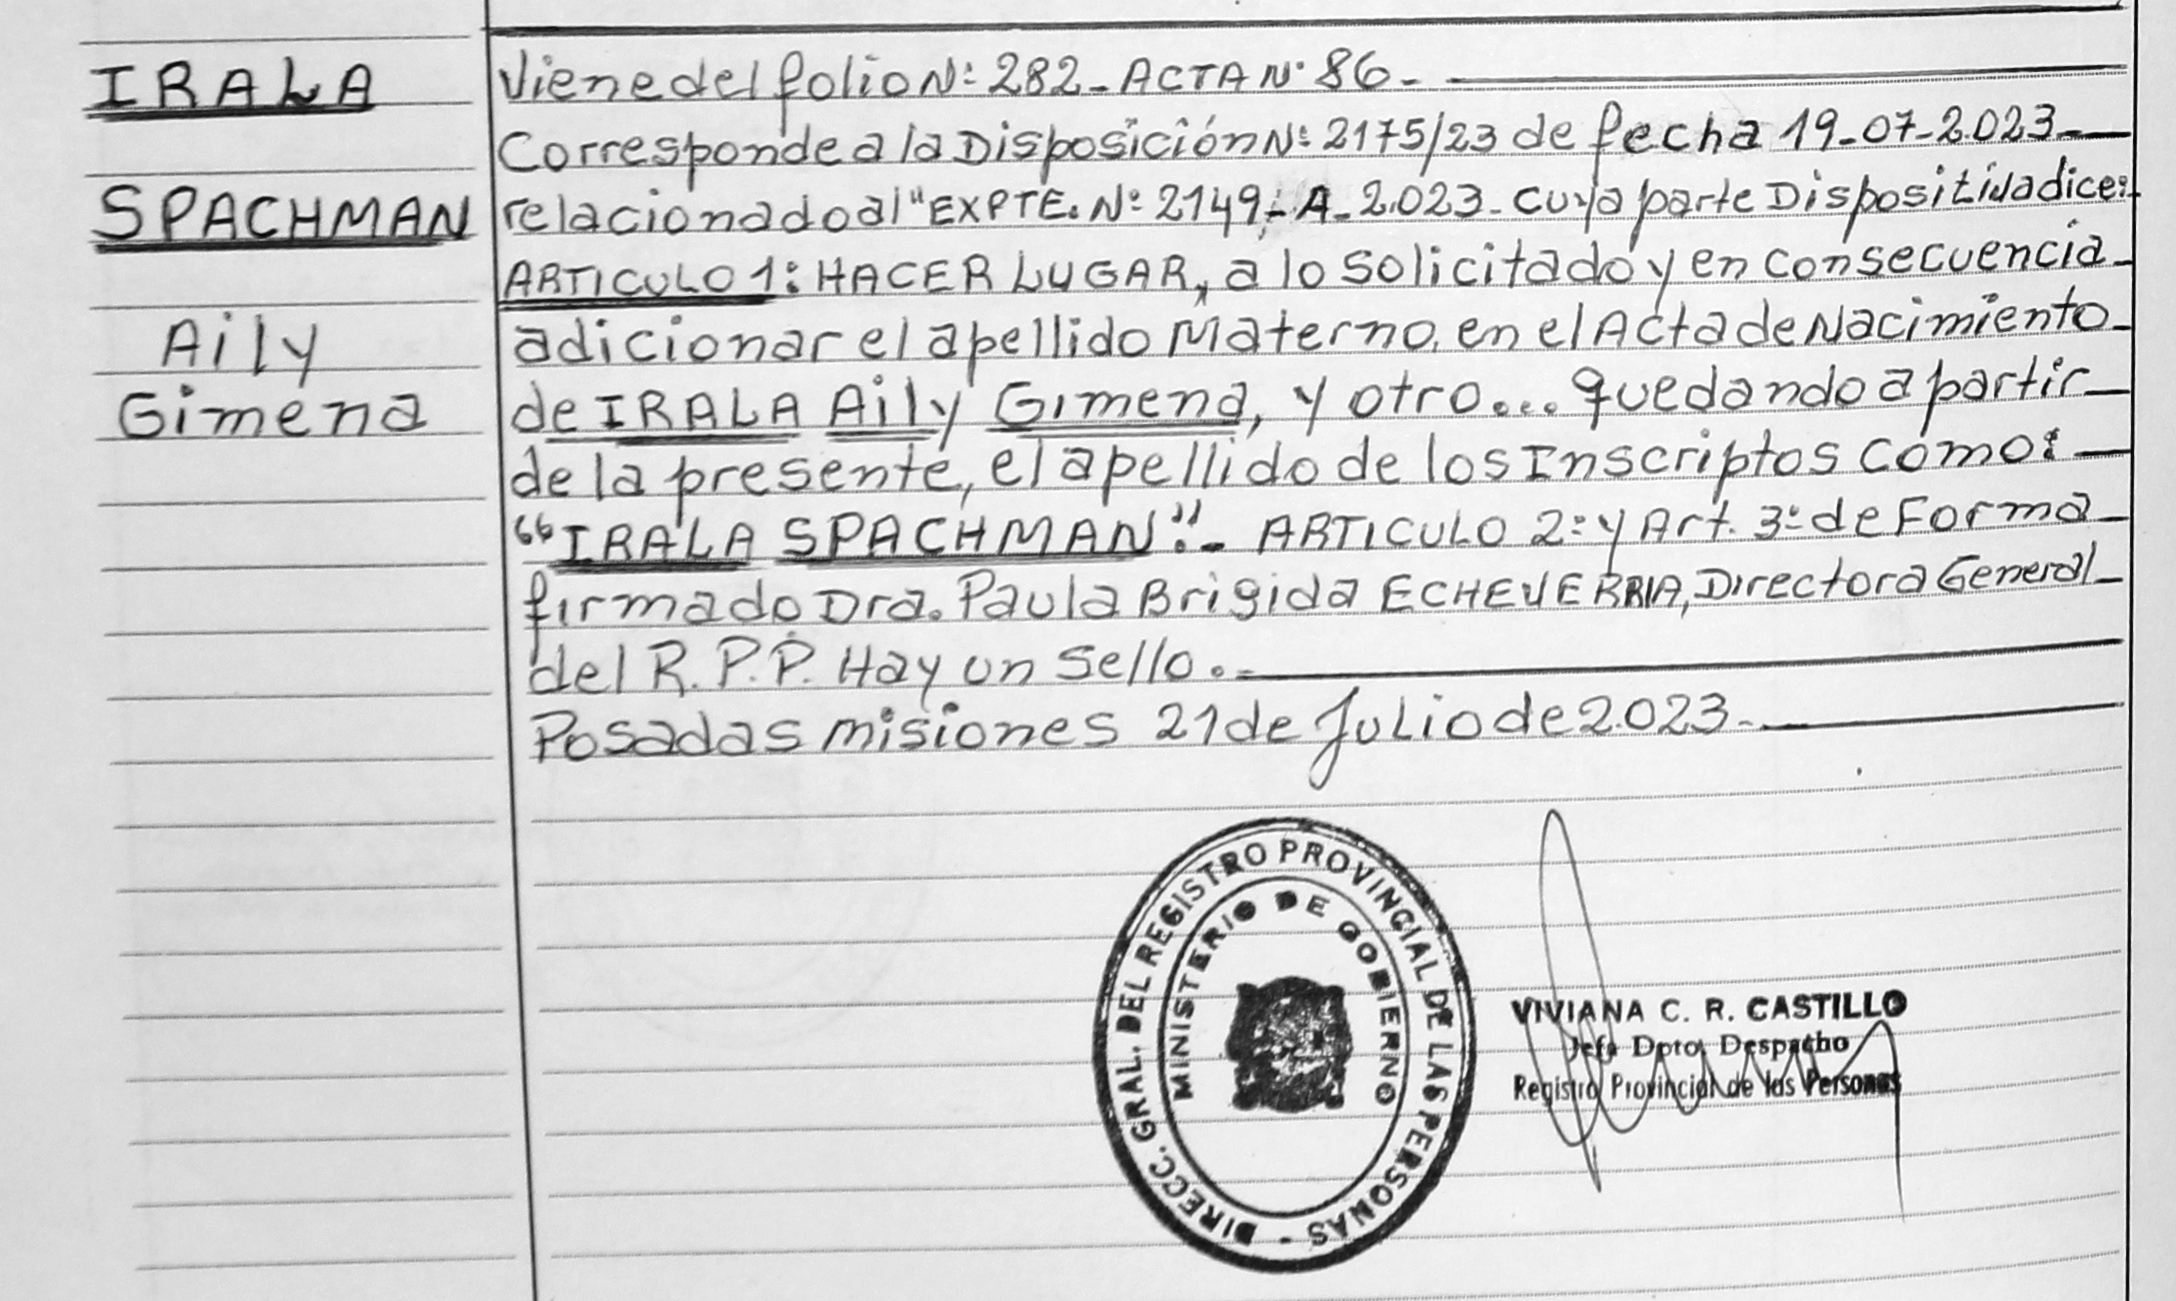 IRALA
SPACHMAN
Aily
Gimena
Viene del folio Nº 282 - ACTA Nº 86 -
Corresponde a la Disposición Nº 2175/23 de fecha 19-07-2.023-
relacionado al "EXPTE. Nº 2149,- A - 2.023 - cuya parte Dispositiva dice:
ARTICULO 1: HACER LUGAR, a lo solicitado y en consecuencia
adicionar el apellido Materno, en el Acta de Nacimiento
de IRALA Aily Gimena, y otro... quedando a partir
de la presente, el apellido de los Inscriptos como:
"IRALA SPACHMAN".- ARTICULO 2º y Art. 3º de Forma
firmado Dra. Paula Brigida ECHEVERRIA, Directora General
del R.P.P. Hay un sello.-
Posadas misiones 21 de Julio de 2.023-
DIRECC. GRAL. DEL REGISTRO PROVINCIAL DE LAS PERSONAS -
MINISTERIO DE GOBIERNO
VIVIANA C. R. CASTILLO
Jefa Dpto. Despacho
Registro Provincial de las Personas